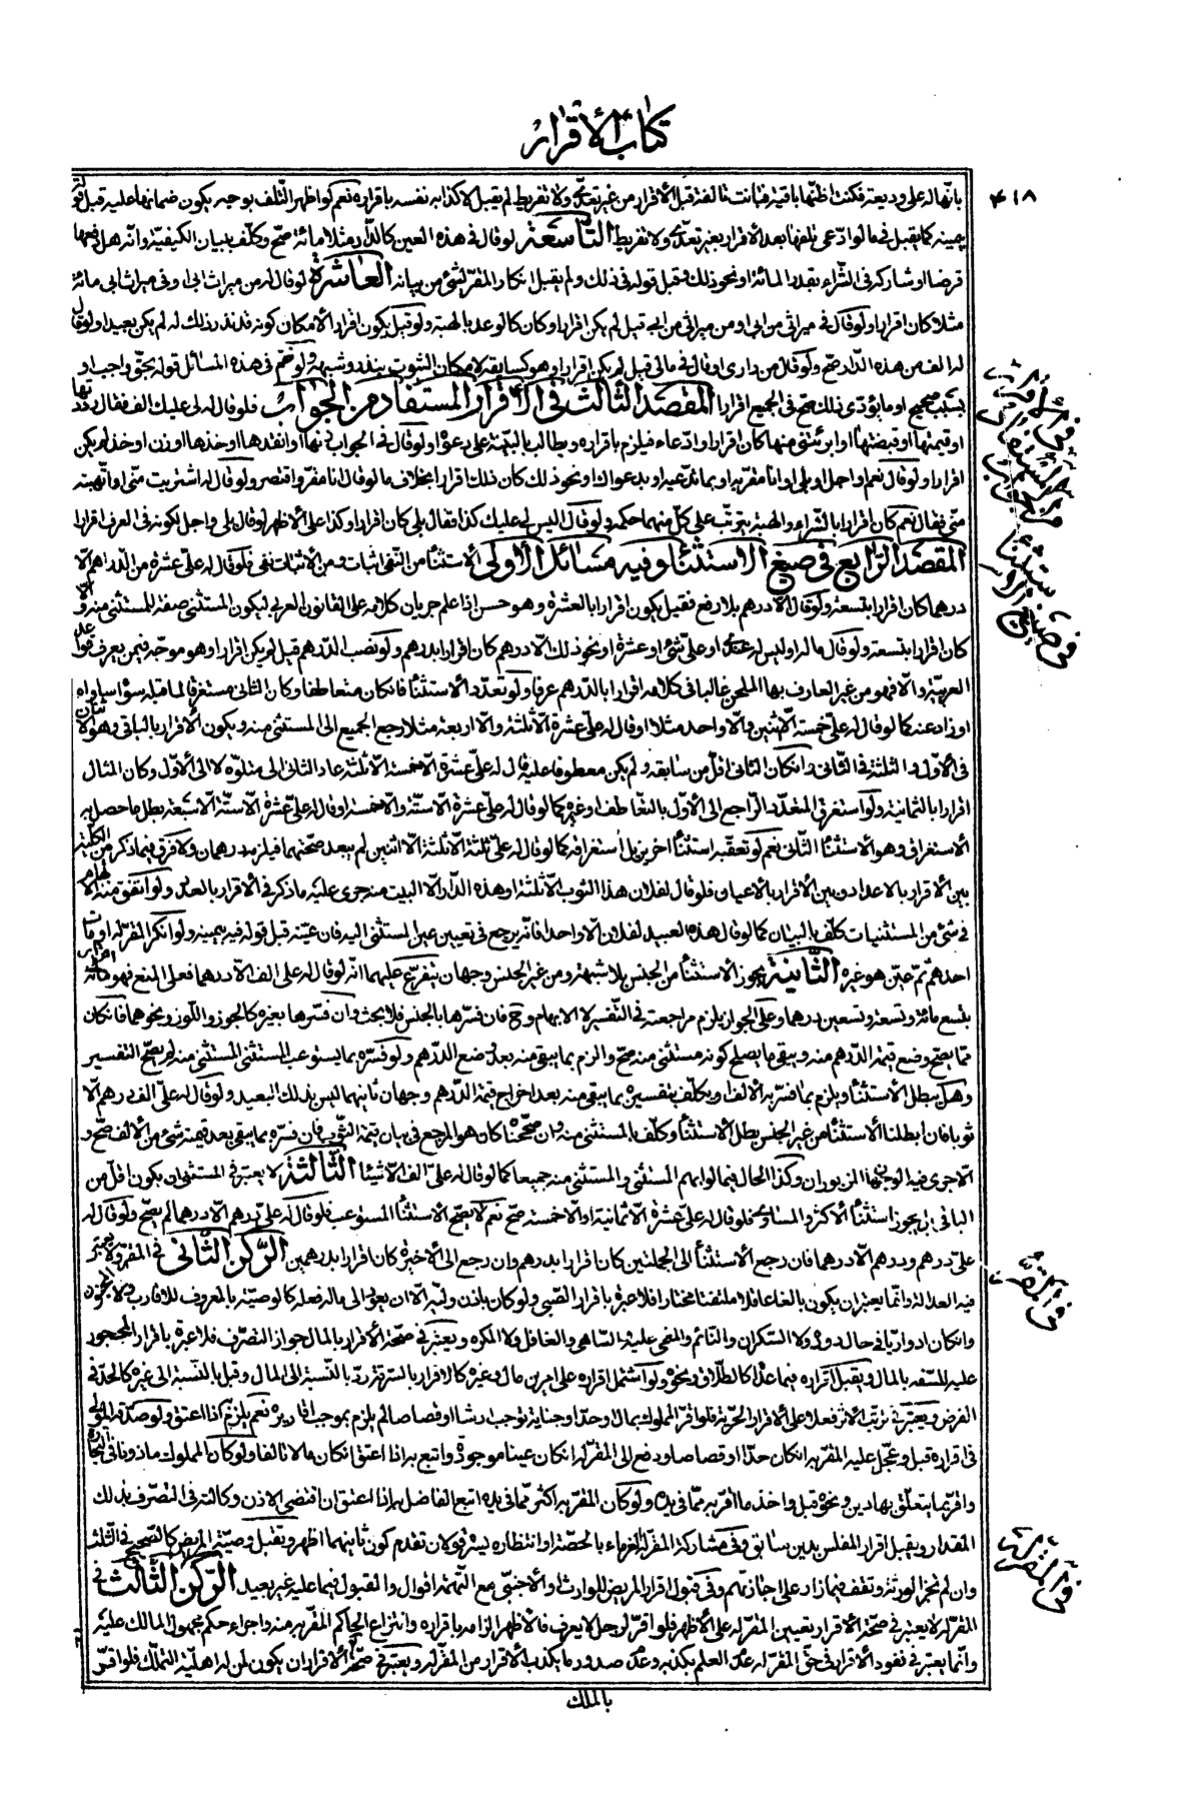 كتاب الأقرار
٤١٨
بانّها له على وديعته فكنت اظنّها باقية فبانت تالفة قبل الأقرار من غير تعدّ ولا تفريط لم يقبل لاكذابه نفسه باقراره نعم لو اظهر التّلف بوجه يكون ضمانها عليه قبل قوله
بيمينه كما يقبل فيما لو ادّعى تلفها بعد الأقرار بغير تعدّ ولا تفريط التّاسعة لو قال في هذه العين كالدّار مثلا مائة صحّ وكلّف ببيان الكيفيّة وانّه هل دفعها
قرضا او شاركه في الشّراء بقدر المائة او نحو ذلك وقبل قوله في ذلك ولم يقبل انكار المقرّ لشئ من بيانه العاشرة لو قال له من ميراث ابى او في ميراث ابى مائة
مثلا كان اقرارا ولو قال في ميراثى من ابى او من ميراثى من ابى قيل لم يكن اقرارا وكان كالوعد بالهبة ولو قيل بكون اقرارا لأمكان كونه قد نذر ذلك له لم يكن بعيدا ولو قال
له الف من هذه الدّار صحّ ولو قال من دارى او قال في مالى قيل لم يكن اقرارا وهو كسابقه لامكان الثبوت بنذر وشبهه ولو ضمّ في هذه المسائل قوله بحقّ واجب او
بسبب صحيح او ما يؤدّى ذلك صحّ في الجميع اقرارا المقصد الثّالث في الأقرار المستفاد من الجواب فلو قال له لى عليك الف فقال رددتها
او قبضتها او ابرئتنى منها كان اقرارا وادّعاء فيلزم باقراره ويطالب بالبيّنة على دعواه ولو قال في الجواب زنها او انقدها او خذها او زن او خذ لم يكن
اقرارا ولو قال نعم او اجل او بلى او انا مقرّ به او بما تدّعيه او بدعواك او نحو ذلك كان ذلك اقرارا بخلاف ما لو قال انا مقرّ واقتصر ولو قال له اشتريت منّى او اتّهبته
منّى فقال نعم كان اقرارا بالشّراء والهبة يترتّب على كلّ منهما حكمه ولو قال اليس لى عليك كذا فقال بلى كان اقرارا وكذا على الأظهر لو قال بلى واجل لكونه في العرف اقرارا
المقصد الرّابع في صيغ الاستثناء وفيه مسائل الأولى الأستثناء من النّفى اثبات ومن الأثبات نفى فلو قال له علىّ عشرة من الدّراهم الّا
درهما كان اقرارا بتسعة ولو قال الّا درهم بلا رفع فقيل يكون اقرارا بالعشرة وهو حسن اذا علم جريان كلامه على القانون العربى ليكون المستثنى صفة للمستثنى منه والّا
كان اقرارا بتسعة ولو قال ماله او ليس له عندى او علىّ شئ او عشرة او نحو ذلك الّا درهم كان اقرارا بدرهم ولو نصب الدّرهم قيل لم يكن اقرارا وهو موجّه فيمن يعرف قواعد
العربيّة والّا فهو من غير العارف بها الملحن غالبا في كلامه اقرارا بالدّرهم عرفا ولو تعدّد الأستثناء فان كان متعاطفا وكان الثّانى مستغرقا لما قبله سواء ساواه
او زاد عنه كما لو قال له علىّ خمسة الّا اثنين والّا واحد مثلا او قال له علىّ عشرة الّا ثلثة والّا اربعة مثلا رجع الجميع الى المستثنى منه ويكون الأقرار بالباقى وهو الاثنان
في الأوّل والثلثة في الثّانى وان كان الثانى اقلّ من سابقه ولم يكن معطوفا عليه فان قال له علىّ عشرة الّا خمسة الّا ثلثة عاد الثانى الى متلوّه لا الى الأوّل وكان المثال
اقرارا بالثمانية ولو استغرق المتعدّد الرّاجع الى الأوّل بالتّعاطف او غيره كما لو قال له علىّ عشرة الّا ستّة والّا خمسة او قال له علىّ عشرة الّا ستّة الّا سبعة بطل ما حصل به
الأستغراق وهو الأستثناء الثّانى نعم لو تعقّبه استثناء اخر يزيل استغراقه كما لو قال له علىّ ثلثة الّا ثلثة الّا اثنين لم يبعد صحّتهما فيلزم بدرهمان ولا فرق فيما ذكر من الكلّية
بين الأقرار بالاعداد وبين الأقرار بالأعيان فلو قال لفلان هذا الثوب الّا ثلثه او هذه الدّار الّا البيت منه جرى عليه ما ذكر في الأقرار بالعدد ولو اتّفق منه الأبهام
في شئ من المستثنيات كلّف بالبيان كما لو قال هذه العبيد لفلان الّا واحدا فانّه يرجع في تعيين عين المستثنى اليه فان عيّنه قبل قوله فيه بيمينه ولو انكر المقرّ له او مات
احدهم ثمّ عيّن هو غيره الثّانية يجوز الأستثناء من الجنس بلا شبهة ومن غير الجنس وجهان يتفرّع عليهما انّه لو قال له علىّ الف الّا درهما فعلى المنع فهو اقرار
بتسع مائة وتسعة وتسعين درهما وعلى الجواز يلزم مراجعته في التّفسير لا الابهام وح فان فسّرها بالجنس فلا بحث وان فسّرها بغيره كالجوز واللّوز ونحوهما فان كان
ممّا يصحّ وضع قيمة الدّرهم منه ويبقى ما يصلح كونه مستثنى منه صحّ والزم بما يبقى منه بعد وضع الدّرهم ولو فسّره بما يستوعب المستثنى المستثنى منه لم يصحّ التفسير
وهل يبطل الأستثناء ويلزم بما فسّر به الألف او يكلّف بتفسيره بما يبقى منه بعد اخراج قيمة الدّرهم وجهان ثانيهما ليس بذلك البعيد ولو قال له علىّ الف درهم الّا
ثوبا فان ابطلنا الأستثناء من غير الجنس بطل الأستثناء وكلّف بالمستثنى منه وان صحّحناه كان هو المرجع في بيان قيمة الثّوب فان فسّره بما يبقى بعد قيمته شئ من الألف صحّ و
الّا جرى فيه الوجهان المزبوران وكذا الحال فيما لو ابهم المستثنى والمستثنى منه جميعا كما لو قال له علىّ الف الّا شيئا الثّالثة لا يعتبر في المستثنى ان يكون اقلّ من
الباقى بل يجوز استثناء الأكثر والمساوى فلو قال له علىّ عشرة الّا ثمانية او الّا خمسة صحّ نعم لا يصحّ الأستثناء المستوعب فلو قال له علىّ درهم الّا درهما لم يصحّ ولو قال له
علىّ درهم ودرهم الّا درهما فان رجع الأستثناء الى الجملتين كان اقرارا بدرهم وان رجع الى الأخيرة كان اقرارا بدرهمين الرّكن الثّانى في المقرّ ولا يعتبر
فيه العدالة وانّما يعتبر ان يكون بالغا عاقلا ملتفتا مختارا فلا عبرة باقرار الصّبى ولو كان باذن وليّه الّا ان يعود الى ماله فعله كالوصيّة بالمعروف للاقارب ولا المجنون
وان كان ادواريّا في حال دوره ولا السّكران والنّائم والمغمى عليه والسّاهى والغافل ولا المكره ويعتبر في صحّة الأقرار بالمال جواز التصرّف فلا عبرة باقرار المحجور
عليه للسّفه بالمال ويقبل اقراره فيما عداه كالطّلاق ونحوه ولو اشتمل اقراره على امرين مال وغيره كالاقرار بالسّرقة ردّ بالنّسبة الى المال وقبل بالنّسبة الى غيره كالحدّ في
الفرض ويعتبر في ترتّب الأثر فعلا على الأقرار الحرّية فلو اقرّ المملوك بمال او حدّ او جناية توجب ارشا او قصاصا لم يلزم بموجب اقاريره نعم يلزم بكذا اعتق ولو صدّقه المولى
في اقراره قبل وعجّل عليه المقرّ به ان كان حدّا او قصاصا ودفع الى المقرّ له ان كان عينا موجودة واتبع به اذا اعتق ان كان مالا تالفا ولو كان المملوك ماذونا في التجارة
واقرّ بما يتعلّق بها دين ونحوه قبل واخذ ما اقرّ به ممّا في يده ولو كان المقرّ به اكثر ممّا في يده اتبع الفاضل به اذا اعتق ان اقتضى الاذن وكالته في التّصرّف بذلك
المقدار ويقبل اقرار المفلس بدين سابق وفى مشاركة المقرّ له للغرماء بالحصّة او انتظاره ليسره قولان تقدم كون ثانيهما اظهر وتقبل وصيّة المريض كالصّحيح في الثّلث
وان لم تجز الورثة وتقف فيما زاد على اجازتهم وفى قبول اقرار المريض للوارث او الأجنبىّ مع التّهمة اقوال والقبول فيما عليه غير بعيد الرّكن الثّالث في
المقرّ له لا يعتبر في صحّة الأقرار تعيين المقرّ له على الأظهر فلو اقرّ لرجل لا يعرف فالأظهر الزامه باقراره وانتزاع الحاكم المقرّ به منه واجراء حكم مجهول المالك عليه
وانّما يعتبر في نفوذ الأقرار في حقّ المقرّ له عدم العلم بكذبه وعدم صدور ما يكذب الأقرار من المقرّ له ويعتبر في صحّة الأقرار ان يكون لمن له اهليّة التّملّك فلو اقرّ
بالملك
في الأقرار المستفاد من الجواب
في صيغ الاستثناء
في المقرّ
في المقرّ له